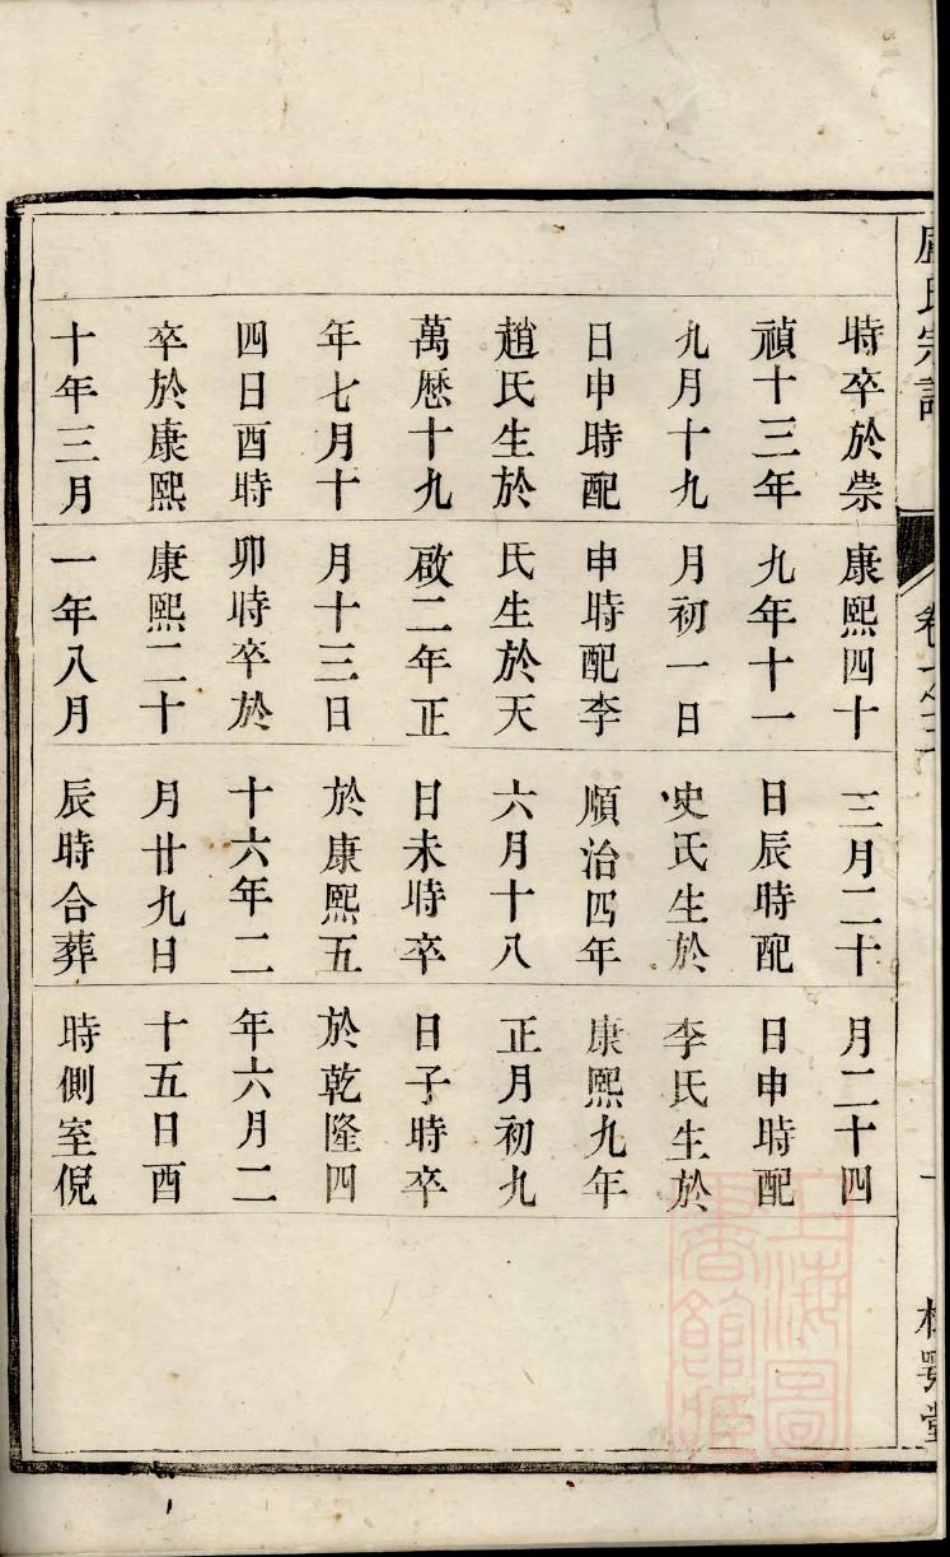 時卒於崇
禎十三年
九月十九
日申時配
趙氏生於
萬歷十九
年七月十
四日酉時
卒於康熙
十年三月
康熙四十
九年十一
月初一日
申時配李
氏生於天
啟二年正
月十三日
卯時卒於
康熙二十
一年八月
三月二十
日辰時配
史氏生於
順治四年
六月十八
日未時卒
於康熙五
十六年二
月廿九日
辰時合葬
月二十四
日申時配
李氏生於
康熙九年
正月初九
日子時卒
於乾隆四
年六月二
十五日酉
時側室倪
上海圖
書館藏